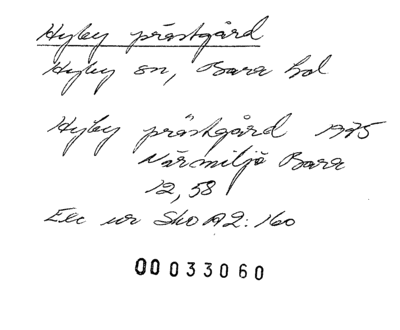 Hyby prästgård
Hyby sn, Bara hd
Hyby prästgård 1975
Närmiljö Bara
12,58
Exc ur Sko A2:160
00033060